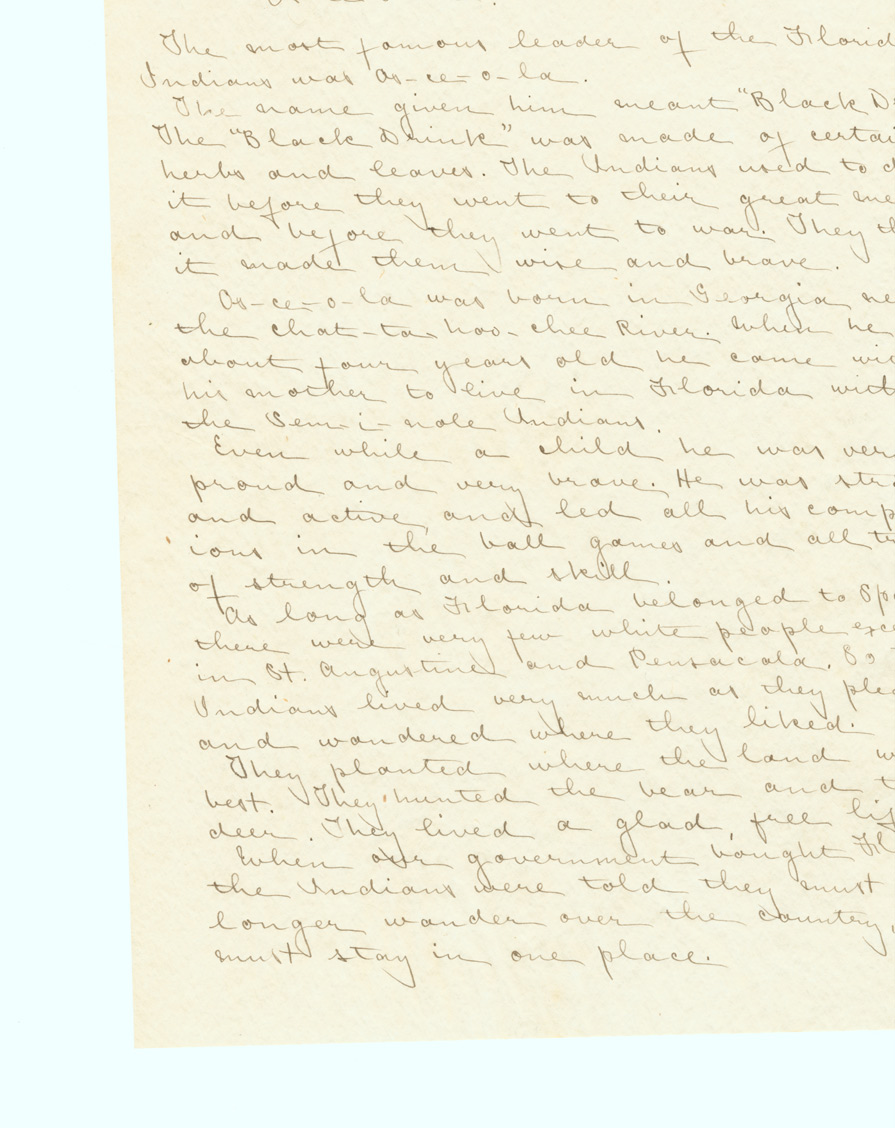 The most famous leader of the Florid
Indians was Os-ce-o-la.
The name given him meant "Black D
The "Black Drink" was made of certai
herbs and leaves. The Indians used to d
it before they went to their great me
and before they went to war. They th
it made them wise and brave.
Os-ce-o-la was born in Georgia ne
the chat-ta-hoo-chee River. When he
about four years old he came wi
his mother to live in Florida with
the Sem-i-nole Indians.
Even while a child he was ver
proud and very brave. He was str
and active, and led all his comp
ions in the ball games and all
of strength and skill.
As long as Florida belonged to Sp
there were very few white people exce
in St. Augustine and Pensacola. So
Indians lived very much as they ple
and wandered where they liked.
They planted where the land w
best. They hunted the bear and t
deer. They lived a glad, free lif
When our government bought Fl
the Indians were told they must
longer wander over the country,
must stay in one place.